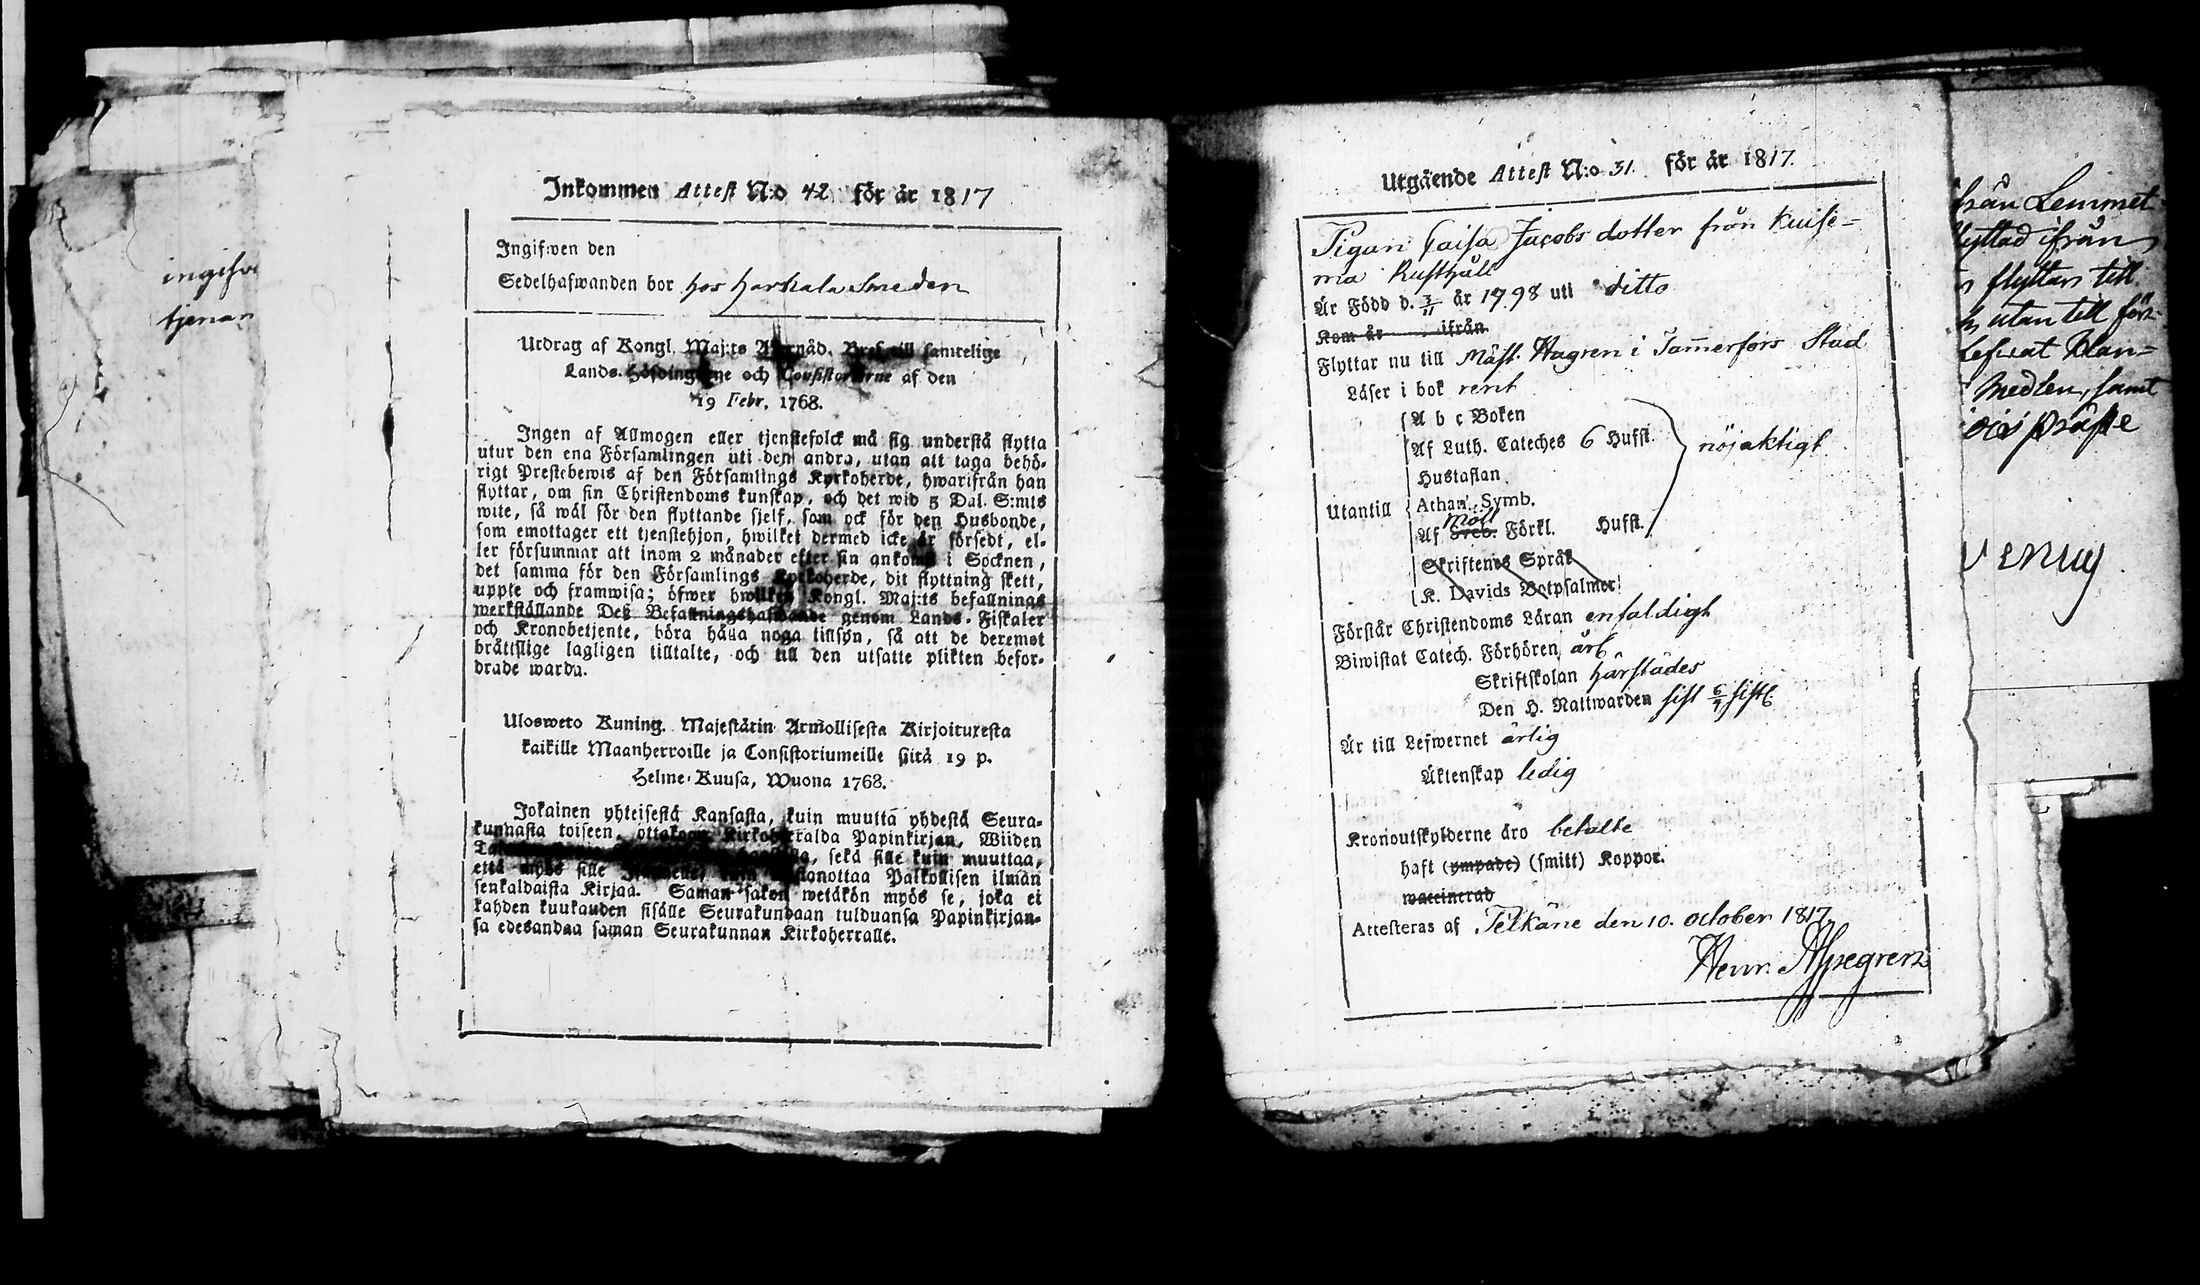 ingifv
tjenar
Inkommen Attest N:o 42 för år 1817
Ingifwen den
Sedelhafwanden bor hos Harhala Smeden
Utdrag af Kongl. Maj:ts Bref till samtelige
Lands-Höfdingarne och Consistorierne af den
19 Febr. 1768.
Ingen af Allmogen eller tjenstefolck må sig understå flytta
utur den ena Församlingen uti den andra, utan att taga behö-
rigt Prestebewis af den Församlings Kyrkoherde, hwarifrån han
flyttar, om sin Christendoms kunskap, och det wid 5 Dal. S:mts
wite, så wäl för den flyttande sjelf, som ock för den Husbonde,
som emottager ett tjenstehjon, hwilket dermed icke är försedt, el-
ler försummar att inom 2 månader efter sin ankomst i Socknen,
det samma för den Församlings Kyrkoherde, dit flyttning skett,
uppte och framwisa; öfwer hwilken Kongl. Maj:ts befallnings
werkställande Deß Befallningshafwande genom Lands-Fiskaler
och Kronobetjente, böra hålla noga tillsyn, så att de deremot
bråttslige lagligen tilltalte, och till den utsatte plikten befor-
drade warda.
Ulosweto Kuning. Majestätin Armollisesta Kirjoituxesta
kaikille Maanherroille ja Consistoriumeille siitä 19 p.
Helme-Kuusa, Wuona 1768.
Jokainen yhteisestä Kansasta, kuin muuttä yhdestä Seura-
kunnasta toiseen, ottakoon Kirkoherralda Papinkirjan, Wiiden
sekä sille kuin muuttaa,
että myös sille kuin wastanottaa Palkollisen ilmän
senkaldaista Kirjaa. Saman sakon wetäkön myös se, joka ei
kahden kuukauden sisälle Seurakundaan tulduansa Papinkirjan-
sa edesandaa saman Seurakunnan Kirkoherralle.
Utgående Attest N:o 31. för år 1817.
Pigan Caisa Jacobs dotter från Kuise=
ma Rusthåll
Är Född d. 3/11 år 1798 uti ditto
Kom år ifrån
Flyttar nu till Mäst. Hagren i Tam̄erfors Stad
Läser i bok rent
A b c Boken
Af Luth. Cateches 6 Hufst.
nöjaktigt
Hustaflan
Utantill
Athan. Symb.
Möll
Af Sveb. Förkl. Hufst.
Skriftenes Språk
K. Davids Botpsalmer
Förstår Christendoms Läran enfaldigt
Biwistat Catech. Förhören årl
Skriftskolan härstädes
Den H. Nattwarden sist 6/7 sistl.
Är till Lefwernet ärlig
Äktenskap ledig
Kronoutskylderne äro betalte
haft (ympade) (smitt) Koppor.
waccinerad
Attesteras af Pelkäne den 10. October 1817
Henr. Alpegren
från Lemmet
flyttad ifrån
flyttar till
utan till för-
lefwat klan=
Medlen, samt